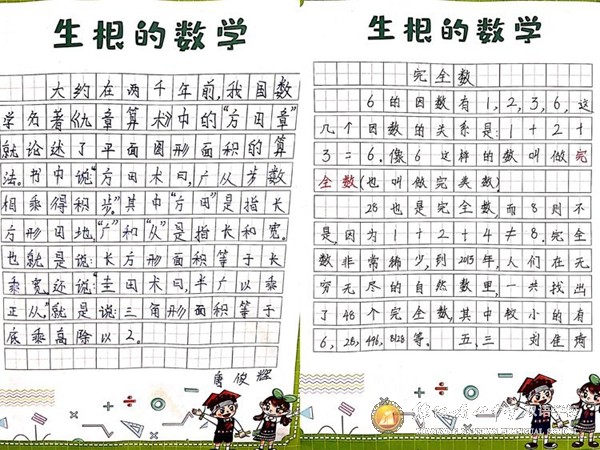 生根的数学
大约在两千年前,我国数
学名著《九章算术》中的“方田章”
就论述了平面图形面积的算
法。书中说“方田术曰,广从步数
相乘得积步。”其中“方田”是指长
方形田地,“广”和“从”是指长和宽。
也就是说:长方形面积等于长
乘宽,还说:“圭田术曰,半广以乘
正从”,就是说:三角形面积等于
底乘高除以2。
唐俊辉
生根的数学
完全数
6的因数有1,2,3,6,这
几个因数的关系是:1+2+
3=6.像6这样的数叫做完
全数(也叫做完美数)
28也是完全数,而8则不
是,因为1+2+4≠8.完全
数非常稀少,到2013年,人们在无
穷无尽的自然数里,一共找出
了48个完全数,其中较小的有
6,28,496,8128等。 五,三 刘佳琦